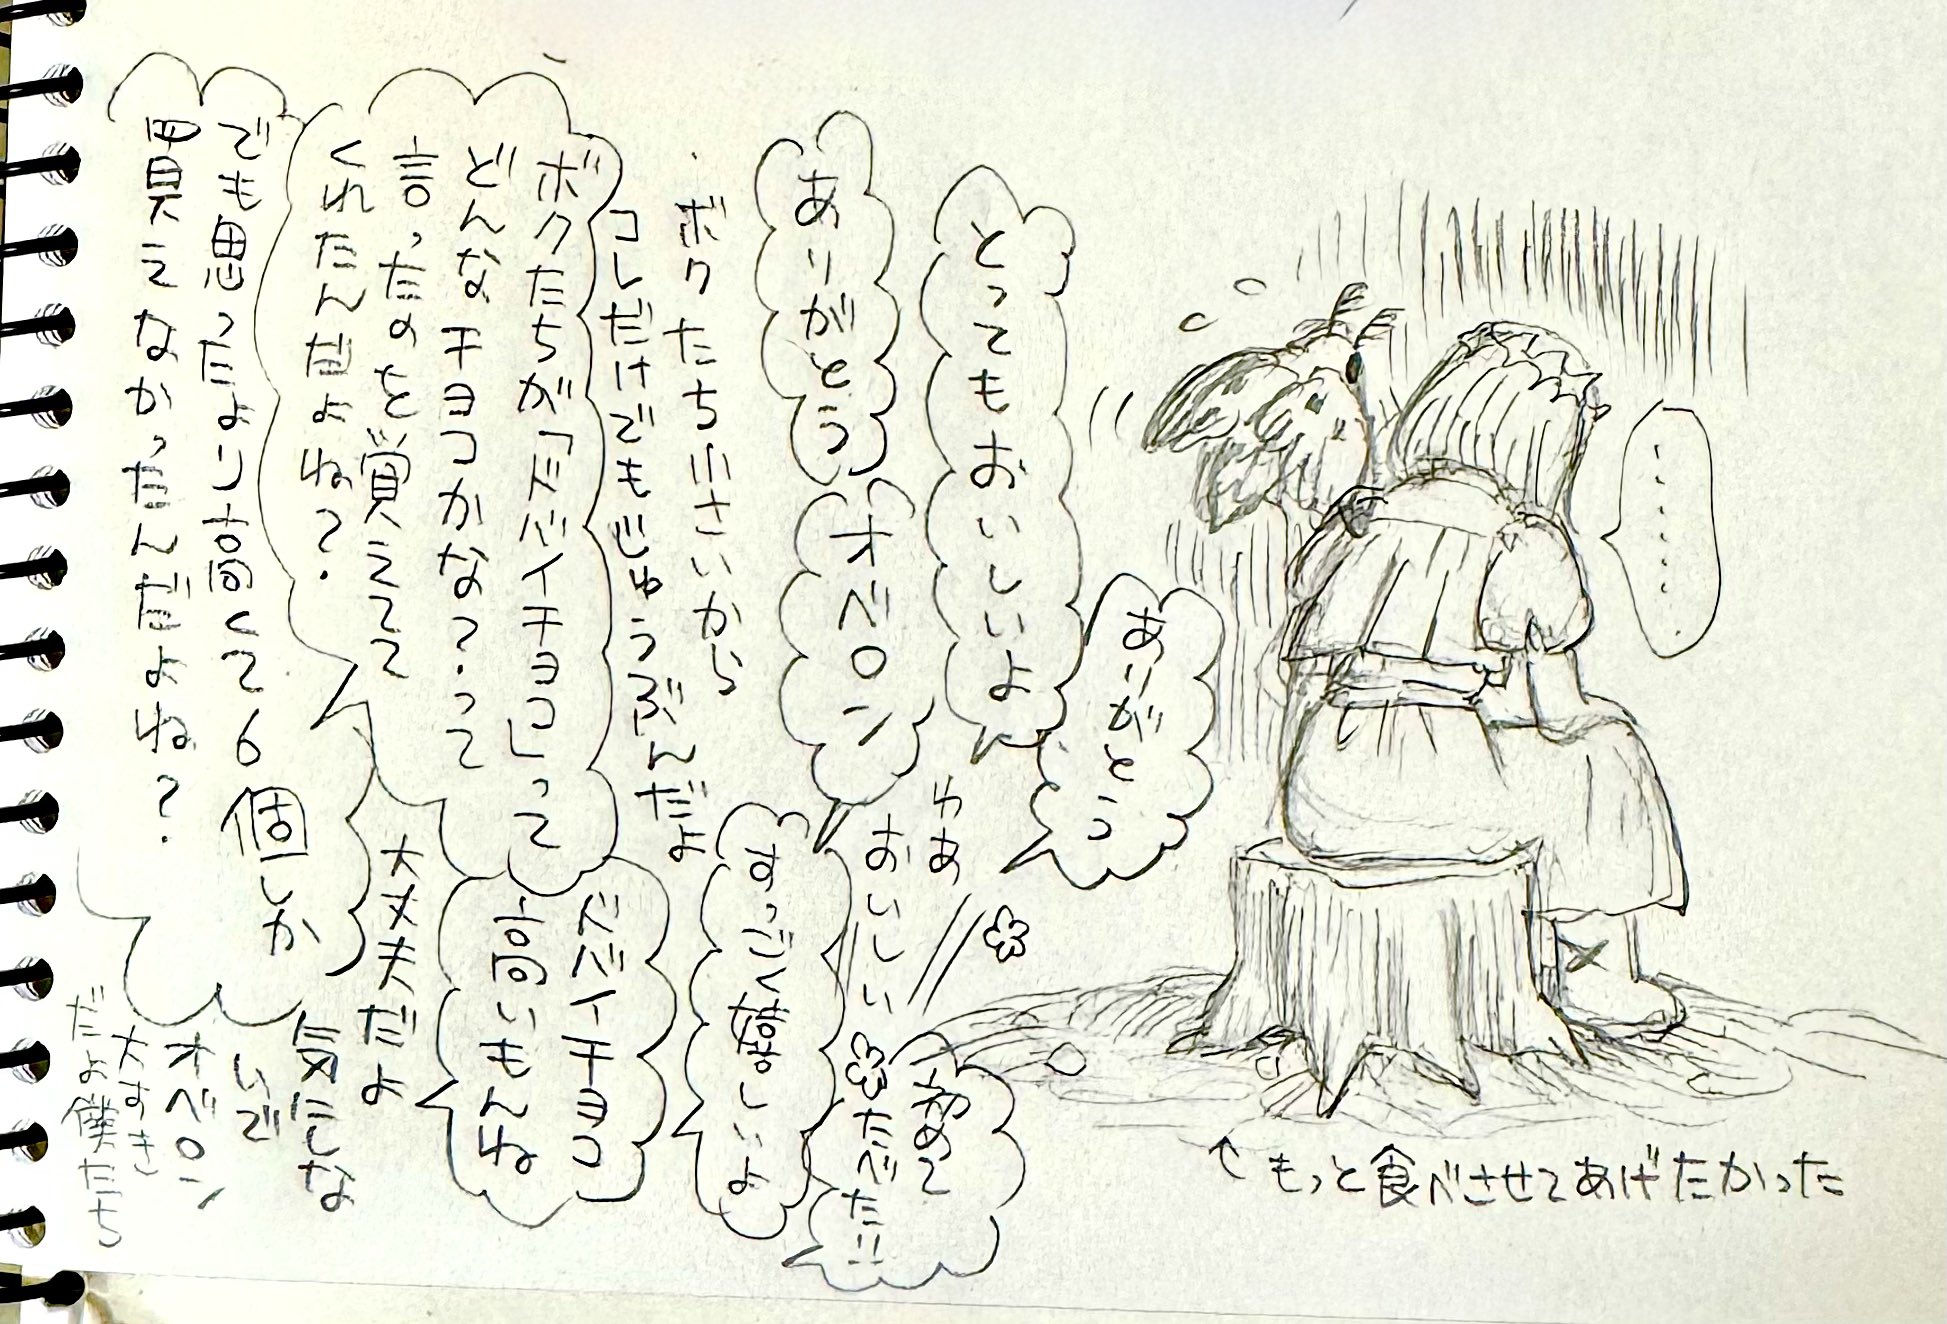 ‥‥‥‥
ありがとう
とってもおいしいよ
ありがとう
オベロン
わあ
おいしい
初めて
たべた!!
すっごく嬉しいよ
ボクたち小さいから
コレだけでもじゅうぶんだよ
ボクたちが「ドバイチョコ」って
どんなチョコかな?って
言ったのを覚えてて
くれたんだよね?
ドバイチョコ
高いもんね
でも思ったより高くて6個しか
買えなかったんだよね?
大丈夫だよ
気にしな
いで
オベロン
大すき
だよ僕たち
↑もっと食べさせてあげたかった